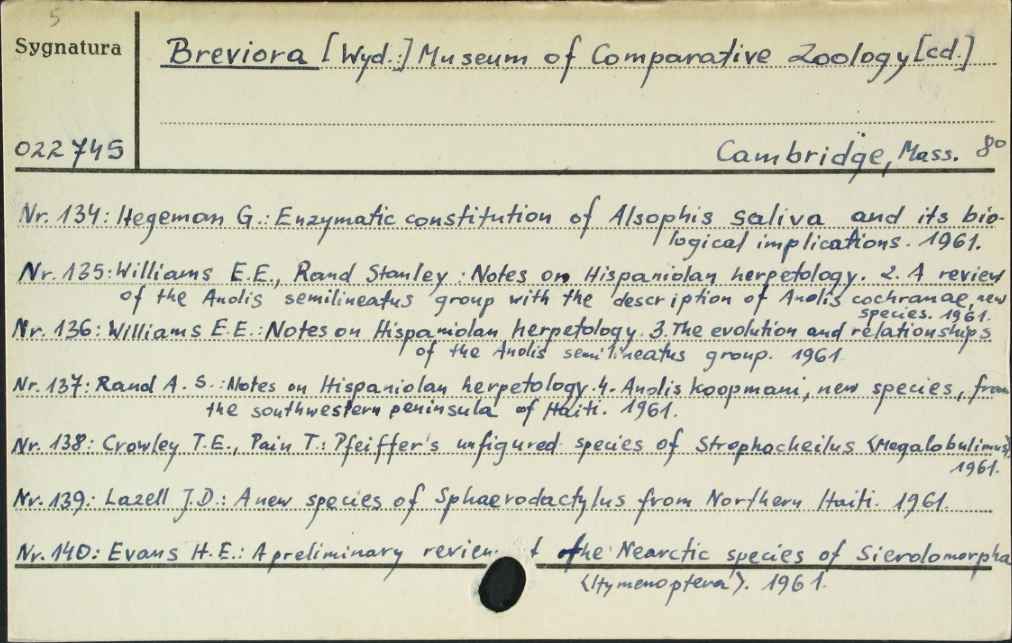 5
Sygnatura
Breviora [Wyd.:] Museum of Comparative Zoology [cd.]
022745
Cambridge, Mass. 8o
Nr. 134: Hegeman G.: Enzymatic constitution of Alsophis saliva and its bio-
logical implications. 1961.
Nr. 135: Williams E.E., Rand Stanley : Notes on Hispaniolan herpetology. 2. A review
of the Anolis semilineatus group with the description of Anolis cochranae, new
species. 1961.
Nr. 136: Williams E.E.: Notes on Hispaniolan herpetology. 3. The evolution and relationships
of the Anolis semilineatus group. 1961
Nr. 137: Rand A. S.: Notes on Hispaniolan herpetology. 4. Anolis koopmani, new species, from
the southwestern peninsula of Haiti. 1961.
Nr. 138: Crowley T.E., Pain T.: Pfeiffer's unfigured species of Strophocheilus <Megalobulimus>
1961.
Nr. 139: Lazell J.D.: A new species of Sphaerodactylus from Northern Haiti. 1961.
Nr. 140: Evans H.E.: A preliminary review of the Nearctic species of Sierolomorpha
<Hymenoptera>. 1961.